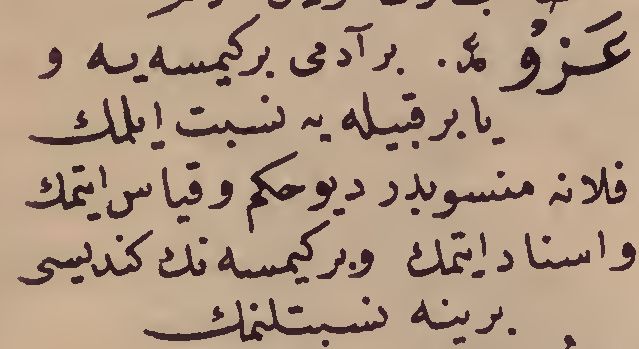 عَزْوْ مص. بر آدمى بر كيمسه يه و
يا بر قبيله يه نسبت ايلمك
فلانه منسوبدر ديو حكم و قياس ايتمك
و اسناد ايتمك و بر كيمسه نك كنديسى
برينه نسبتلنمك